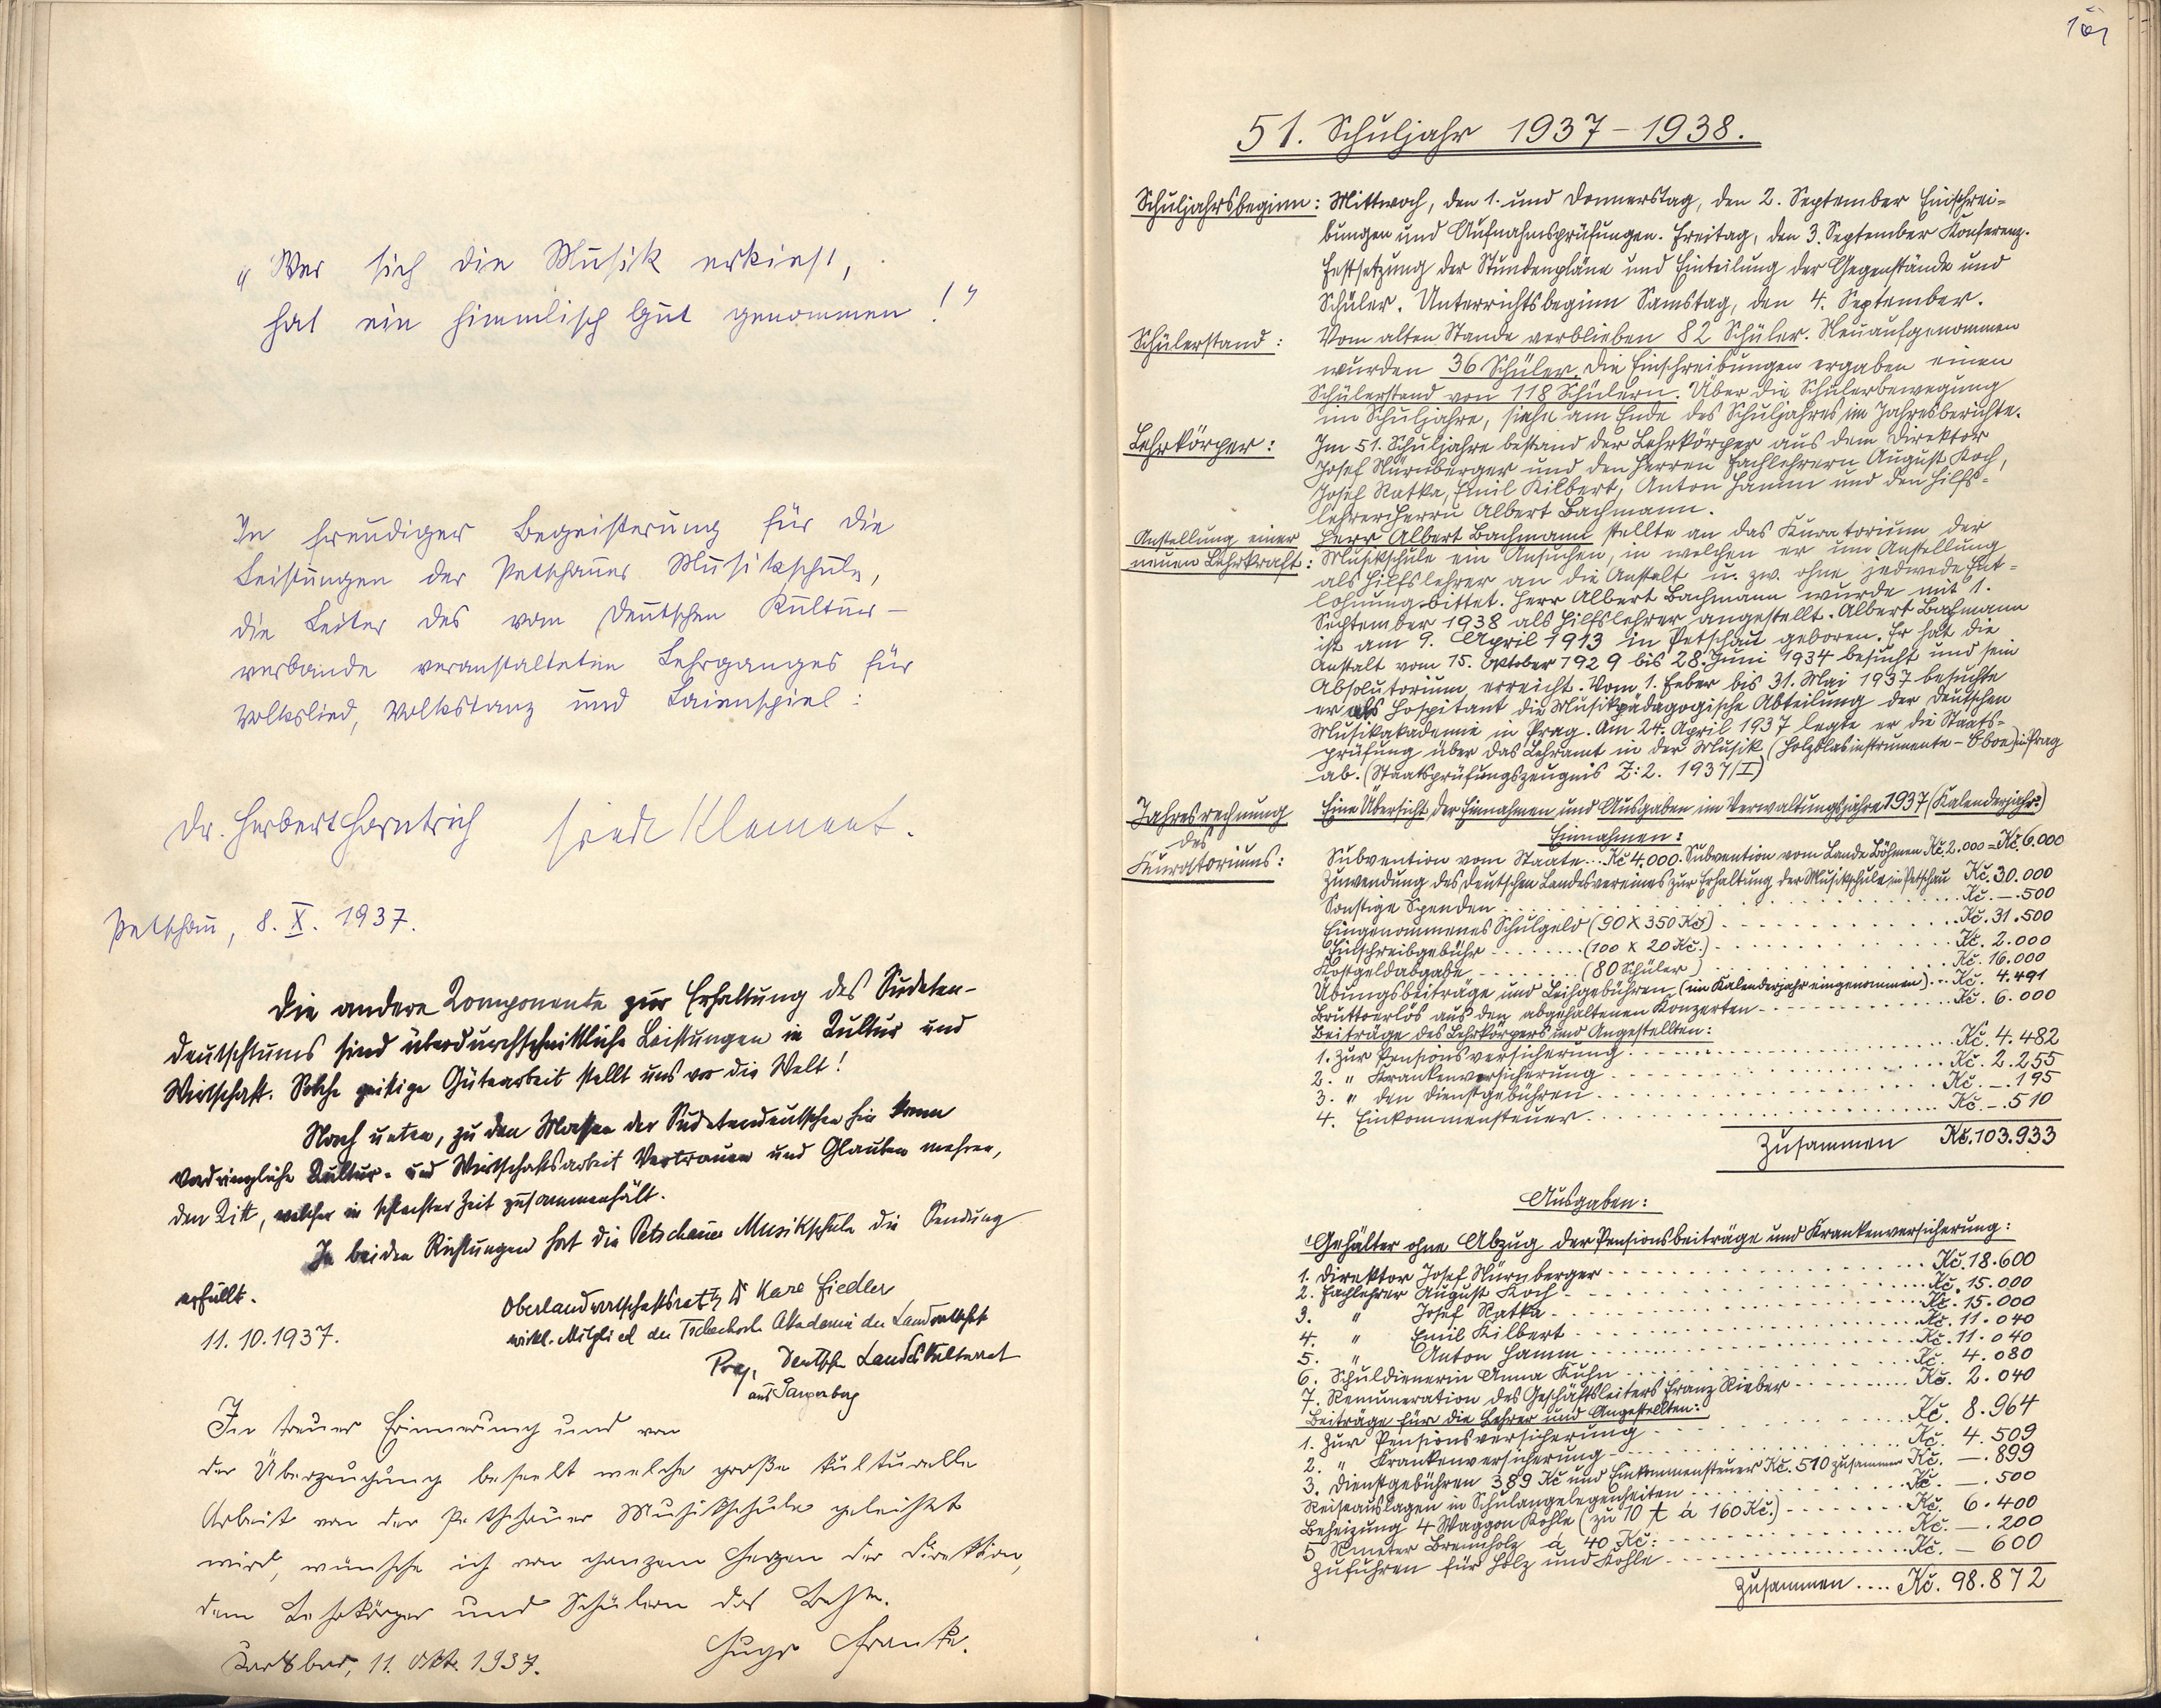 „Wer sich die Musik erkiest,
hat ein himmlisch Gut genommen!"
In freudiger Begeisterung für die
Leistungen der Petschauer Musikschule,
die Leiter des vom Deutschen Kultur-
verbande veranstalteten Lehrganges für
Volkslied, Volkstanz und Laienspiel:
Dr. Herbert Horntrich Friedr Klement.
Petschau, 8. X. 1937.
Die andere Komponente zur Erhaltung des Sudeten-
deutschtums sind überdurchschnittliche Leistungen in Kultur und
Wirtschaft. Solche geistige Gütearbeit stellt uns vor die Welt!
Nach unten, zu den Massen der Sudetendeutschen hin kann
vordringliche Kultur- und Wirtschaftsarbeit Vertrauen und Glauben mehren,
den Kitt, welcher in schlechter Zeit zusammenhält.
In beiden Richtungen hat die Petschauer Musikschule die Sendung
erfüllt.
Oberlandwirtschaftsrat Dr Karl Fiedler
11.10.1937.
wirkl. Mitglied der Tschechosl. Akademie der Landwirtschft
Prag, Deutscher Landeskulturrat
aus
In treuer Erinnerung und von
der Überzeugung beseelt welche große kulturelle
Arbeit von der Petschauer Musikschule geleistet
wird, wünsche ich von ganzem Herzen der Direktion,
dem Lehrkörper und Schülern das Beste.
Hugo Franke.
Karlsbad, 11. Okt. 1937.
161
51. Schuljahr 1937-1938.
Schuljahrsbeginn: Mittwoch, den 1. und Donnerstag, den 2. September Einschrei-
bungen und Aufnahmsprüfungen. Freitag, den 3. September Konferenz.
Festsetzung der Stundenpläne und Einteilung der Gegenstände und
Schüler. Unterrichtsbeginn Samstag, den 4. September.
Schülerstand: Vom alten Stande verblieben 82 Schüler. Neuaufgenommen
wurden 36 Schüler. Die Einschreibungen ergaben einen
Schülerstand von 118 Schülern. Über die Schülerbewegung
im Schuljahre, siehe am Ende des Schuljahres im Jahresberichte.
Lehrkörper: Im 51. Schuljahre bestand der Lehrkörper aus dem Direktor
Josef Nürnberger und den Herren Fachlehrern August Koch,
Josef Ratka, Emil Kilbert, Anton Hamm und den Hilfs-
lehrer Herrn Albert Bachmann.
Anstellung einer Herr Albert Bachmann stellte an das Kuratorium der
neuen Lehrkraft: Musikschule ein Ansuchen, in welchen er um Anstellung
als Hilfslehrer an die Anstalt u. zw. ohne jedwede Ent-
lohnung bittet. Herr Albert Bachmann wurde mit 1.
September 1938 als Hilfslehrer angestellt. Albert Bachmann
ist am 9. April 1913 in Petschau geboren. Er hat die
Anstalt vom 15. Oktober 1929 bis 28. Juni 1934 besucht und sein
Absolutorium erreicht. Vom 1. Feber bis 31. Mai 1937 besuchte
er als Hospitant die Musikpädagogische Abteilung der Deutschen
Musikakademie in Prag. Am 24. April 1937 legte er die Staats-
prüfung über das Lehramt in der Musik (Holzblasinstrumente-Oboe) in Prag
ab. (Staatsprüfungszeugnis Z: 2. 1937/I)
Jahresrechnung Eine Übersicht der Einnahmen und Ausgaben im Verwaltungsjahre 1937 (Kalenderjahr)
des Einnahmen:
Kuratoriums: Subvention vom Staate...Kč 4.000. Subvention vom Lande Böhmen Kč. 2.000 = Kč. 6.000
Zuwendung des Deutschen Landesvereines zur Erhaltung der Musikschule in Petschau Kč. 30.000
Sonstige Spenden........Kč. —.500
Eingenommenes Schulgeld (90 X 350 Kč)........Kč. 31.500
Einschreibgebühr.......(100 X 20 Kč.)........Kč. 2.000
Kostgeldabgabe........(80 Schüler)........Kč. 16.000
Übungsbeiträge und Leihgebühren (im Kalenderjahr eingenommen)...Kč. 4.491
Bruttoerlös aus den abgehaltenen Konzerten........Kč. 6.000
Beiträge des Lehrkörpers und Angestellten:
1. Zur Pensionsversicherung........Kč. 4.482
2. " Krankenversicherung........Kč. 2.255
3. " den Dienstgebühren........Kč. —.195
4. Einkommensteuer........Kč. —.510
Zusammen Kč. 103.933
Ausgaben:
Gehälter ohne Abzug der Pensionsbeiträge und Krankenversicherung:
1. Direktor Josef Nürnberger........Kč. 18.600
2. Fachlehrer August Koch........Kč. 15.000
3. " Josef Ratka........Kč. 15.000
4. " Emil Kilbert........Kč. 11.040
5. " Anton Hamm........Kč. 11.040
6. Schuldienerin Anna Kuhn........Kč. 4.080
7. Remuneration des Geschäftsleiters Franz Rieber........Kč. 2.040
Beiträge für die Lehrer und Angestellten:
1. Zur Pensionsversicherung........Kč. 8.964
2. " Krankenversicherung........Kč. 4.509
3. Dienstgebühren 389 Kč und Einkommensteuer Kč. 510 zusammen Kč. —.899
Reiseauslagen in Schulangelegenheiten........Kč. —.500
Beheizung 4 Waggon Kohle (zu 10 t á 160 Kč.)........Kč. 6.400
5 Rmeter Brennholz á 40 Kč:........Kč. —.200
Zufuhren für Holz und Kohle........Kč. — 600
Zusammen.... Kč. 98.872